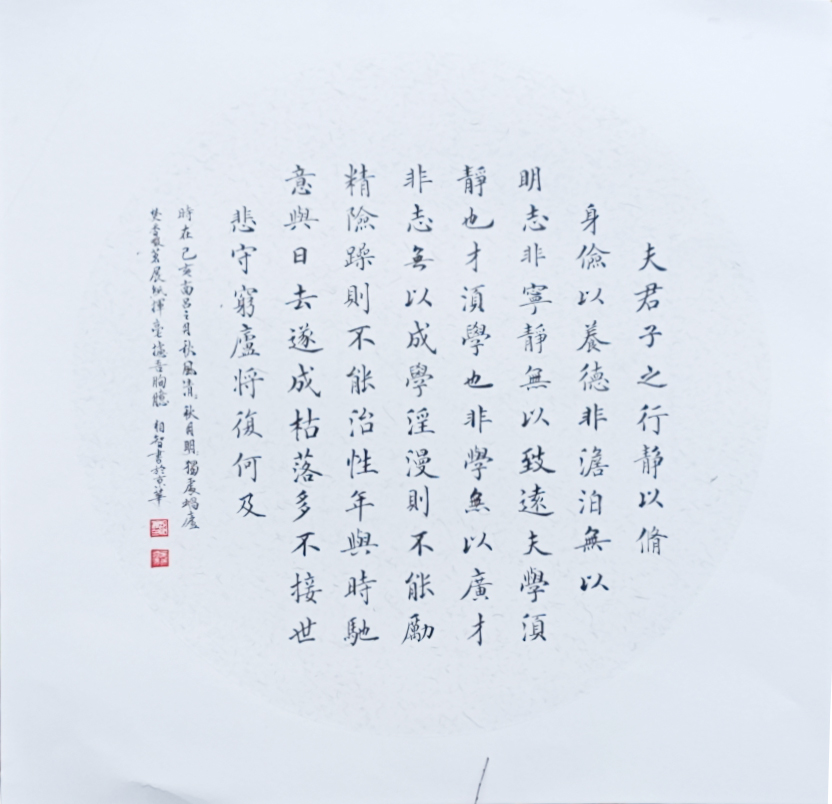 夫君子之行静以脩
身儉以養德非澹泊無以
明志非寧靜無以致遠夫學須
靜也才須學也非學無以廣才
非志無以成學淫漫則不能勵
精險躁則不能治性年與時馳
意與日去遂成枯落多不接世
悲守窮廬將復何及
時在己亥南呂之月秋風清秋月明獨處蝸廬
焚香展紙揮毫攄吾胸臆 柏智書於京華